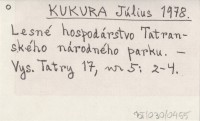 KUKURA Július 1978.
Lesné hospodárstvo Tatran-
ského národného parku. —
Vys. Tatry 17, nr 5: 2-4.